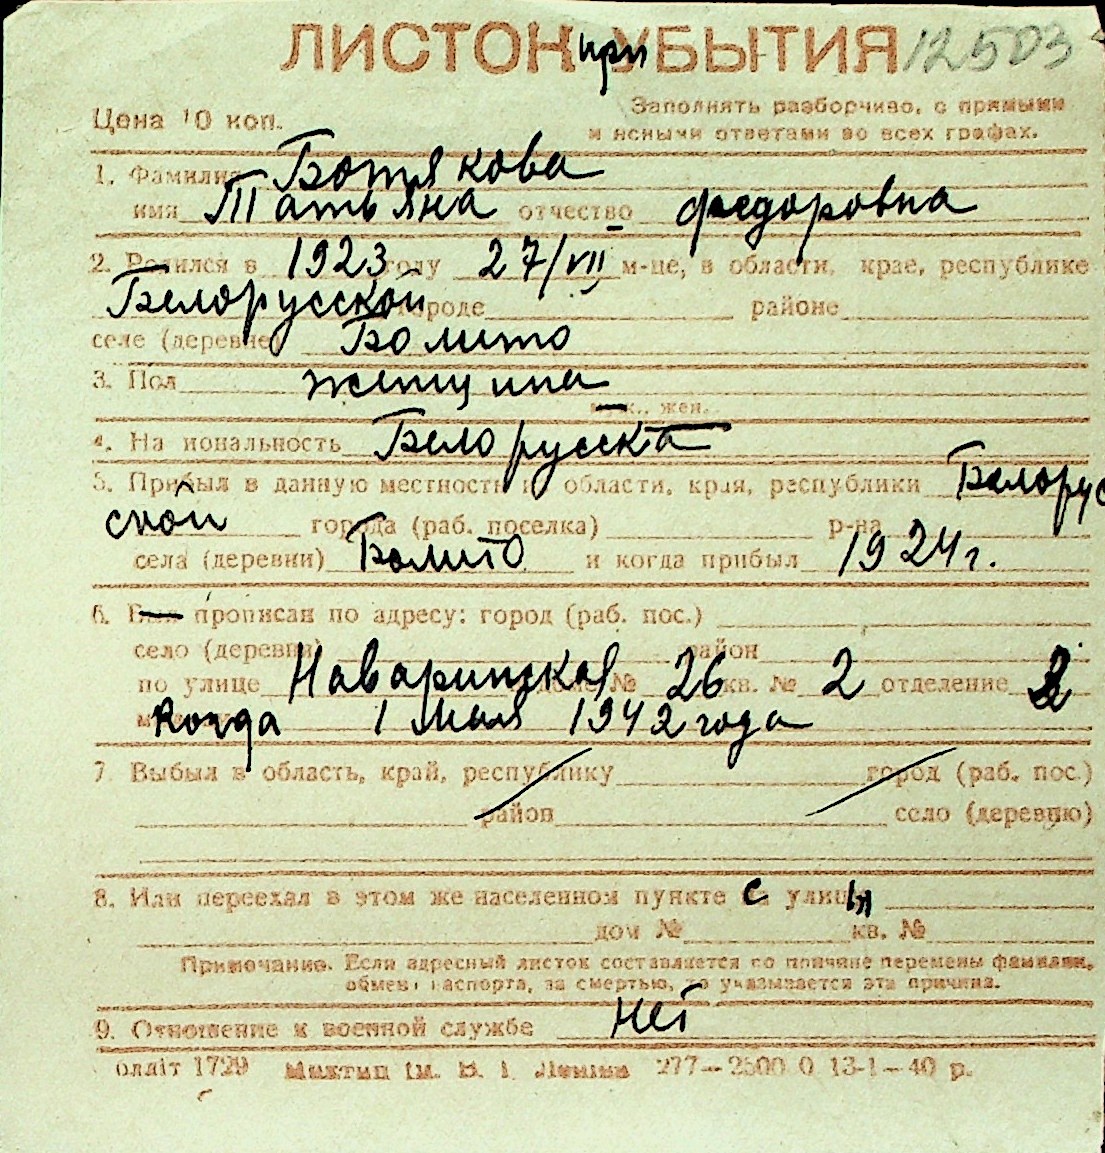 ЛИСТОК при УБЫТИЯ 12503
Цена 10 коп.
Заполнять разборчиво, с прямыми
и ясными ответами во всех графах.
1. Фамилия Ботякова
имя Татьяна отчество федоровна
2. Родился в 1923 году 27/VII м-це, в области, крае, республике
Белорусской городе районе
селе (деревне) Бомито
3. Пол женщина
муж., жен.
4. Национальность Белорусска
5. Прибыл в данную местность из области, края, республики Белорус
ской города (раб. поселка) р-на
села (деревни) Бомито и когда прибыл 1924 г.
6. Был прописан по адресу: город (раб. пос.)
село (деревня) район
по улице Наваринская № 26 кв. № 2 отделение 2
когда 1 Мая 1942 года
7. Выбыл в область, край, республику город (раб. пос.)
район село (деревню)
8. Или переехал в этом же населенном пункте с улицы
дом № кв. №
Примечание. Если адресный листок составляется по причине перемены фамилии,
обмена паспорта, за смертью, то указывается эта причина.
9. Отношение к военной службе Нет
олліт 1729 277—2500 0 13-1-40 р.